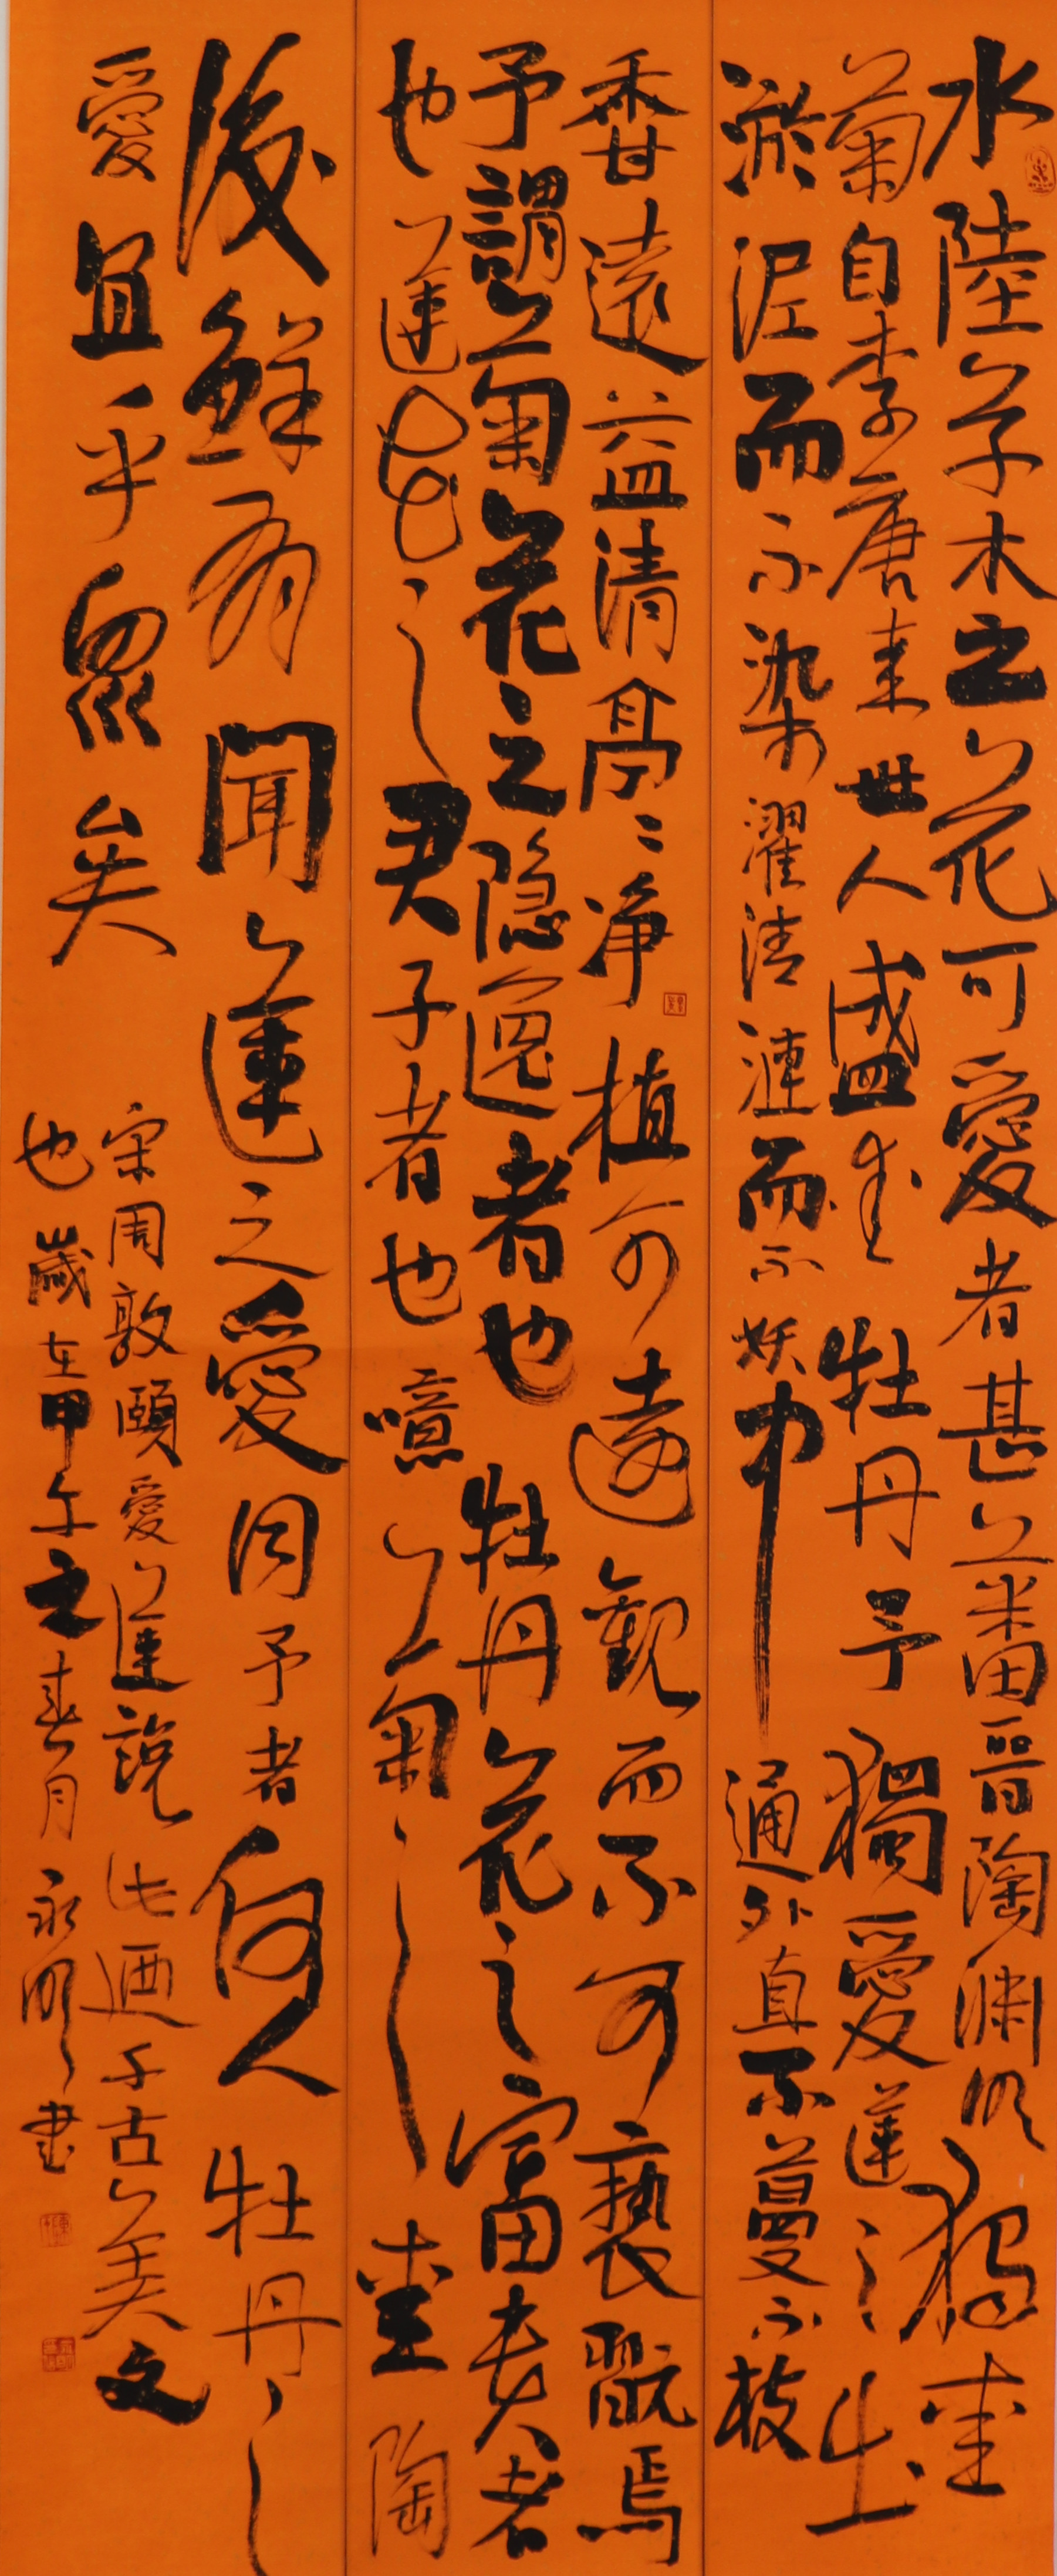 水陸草木之花可愛者甚蕃晉陶淵明獨愛
菊自李唐來世人盛愛牡丹予獨愛蓮之出
淤泥而不染濯清漣而不妖中通外直不蔓不枝
香遠益清亭々淨植可遠觀而不可褻翫焉
予謂菊花之隐逸者也牡丹花之富贵者
也蓮花之君子者也噫菊之愛陶
後鮮有聞蓮之愛同予者何人牡丹之
愛宜乎眾矣
宋周敦頤愛蓮說此迺千古美文
也歲在甲午之春月永明書